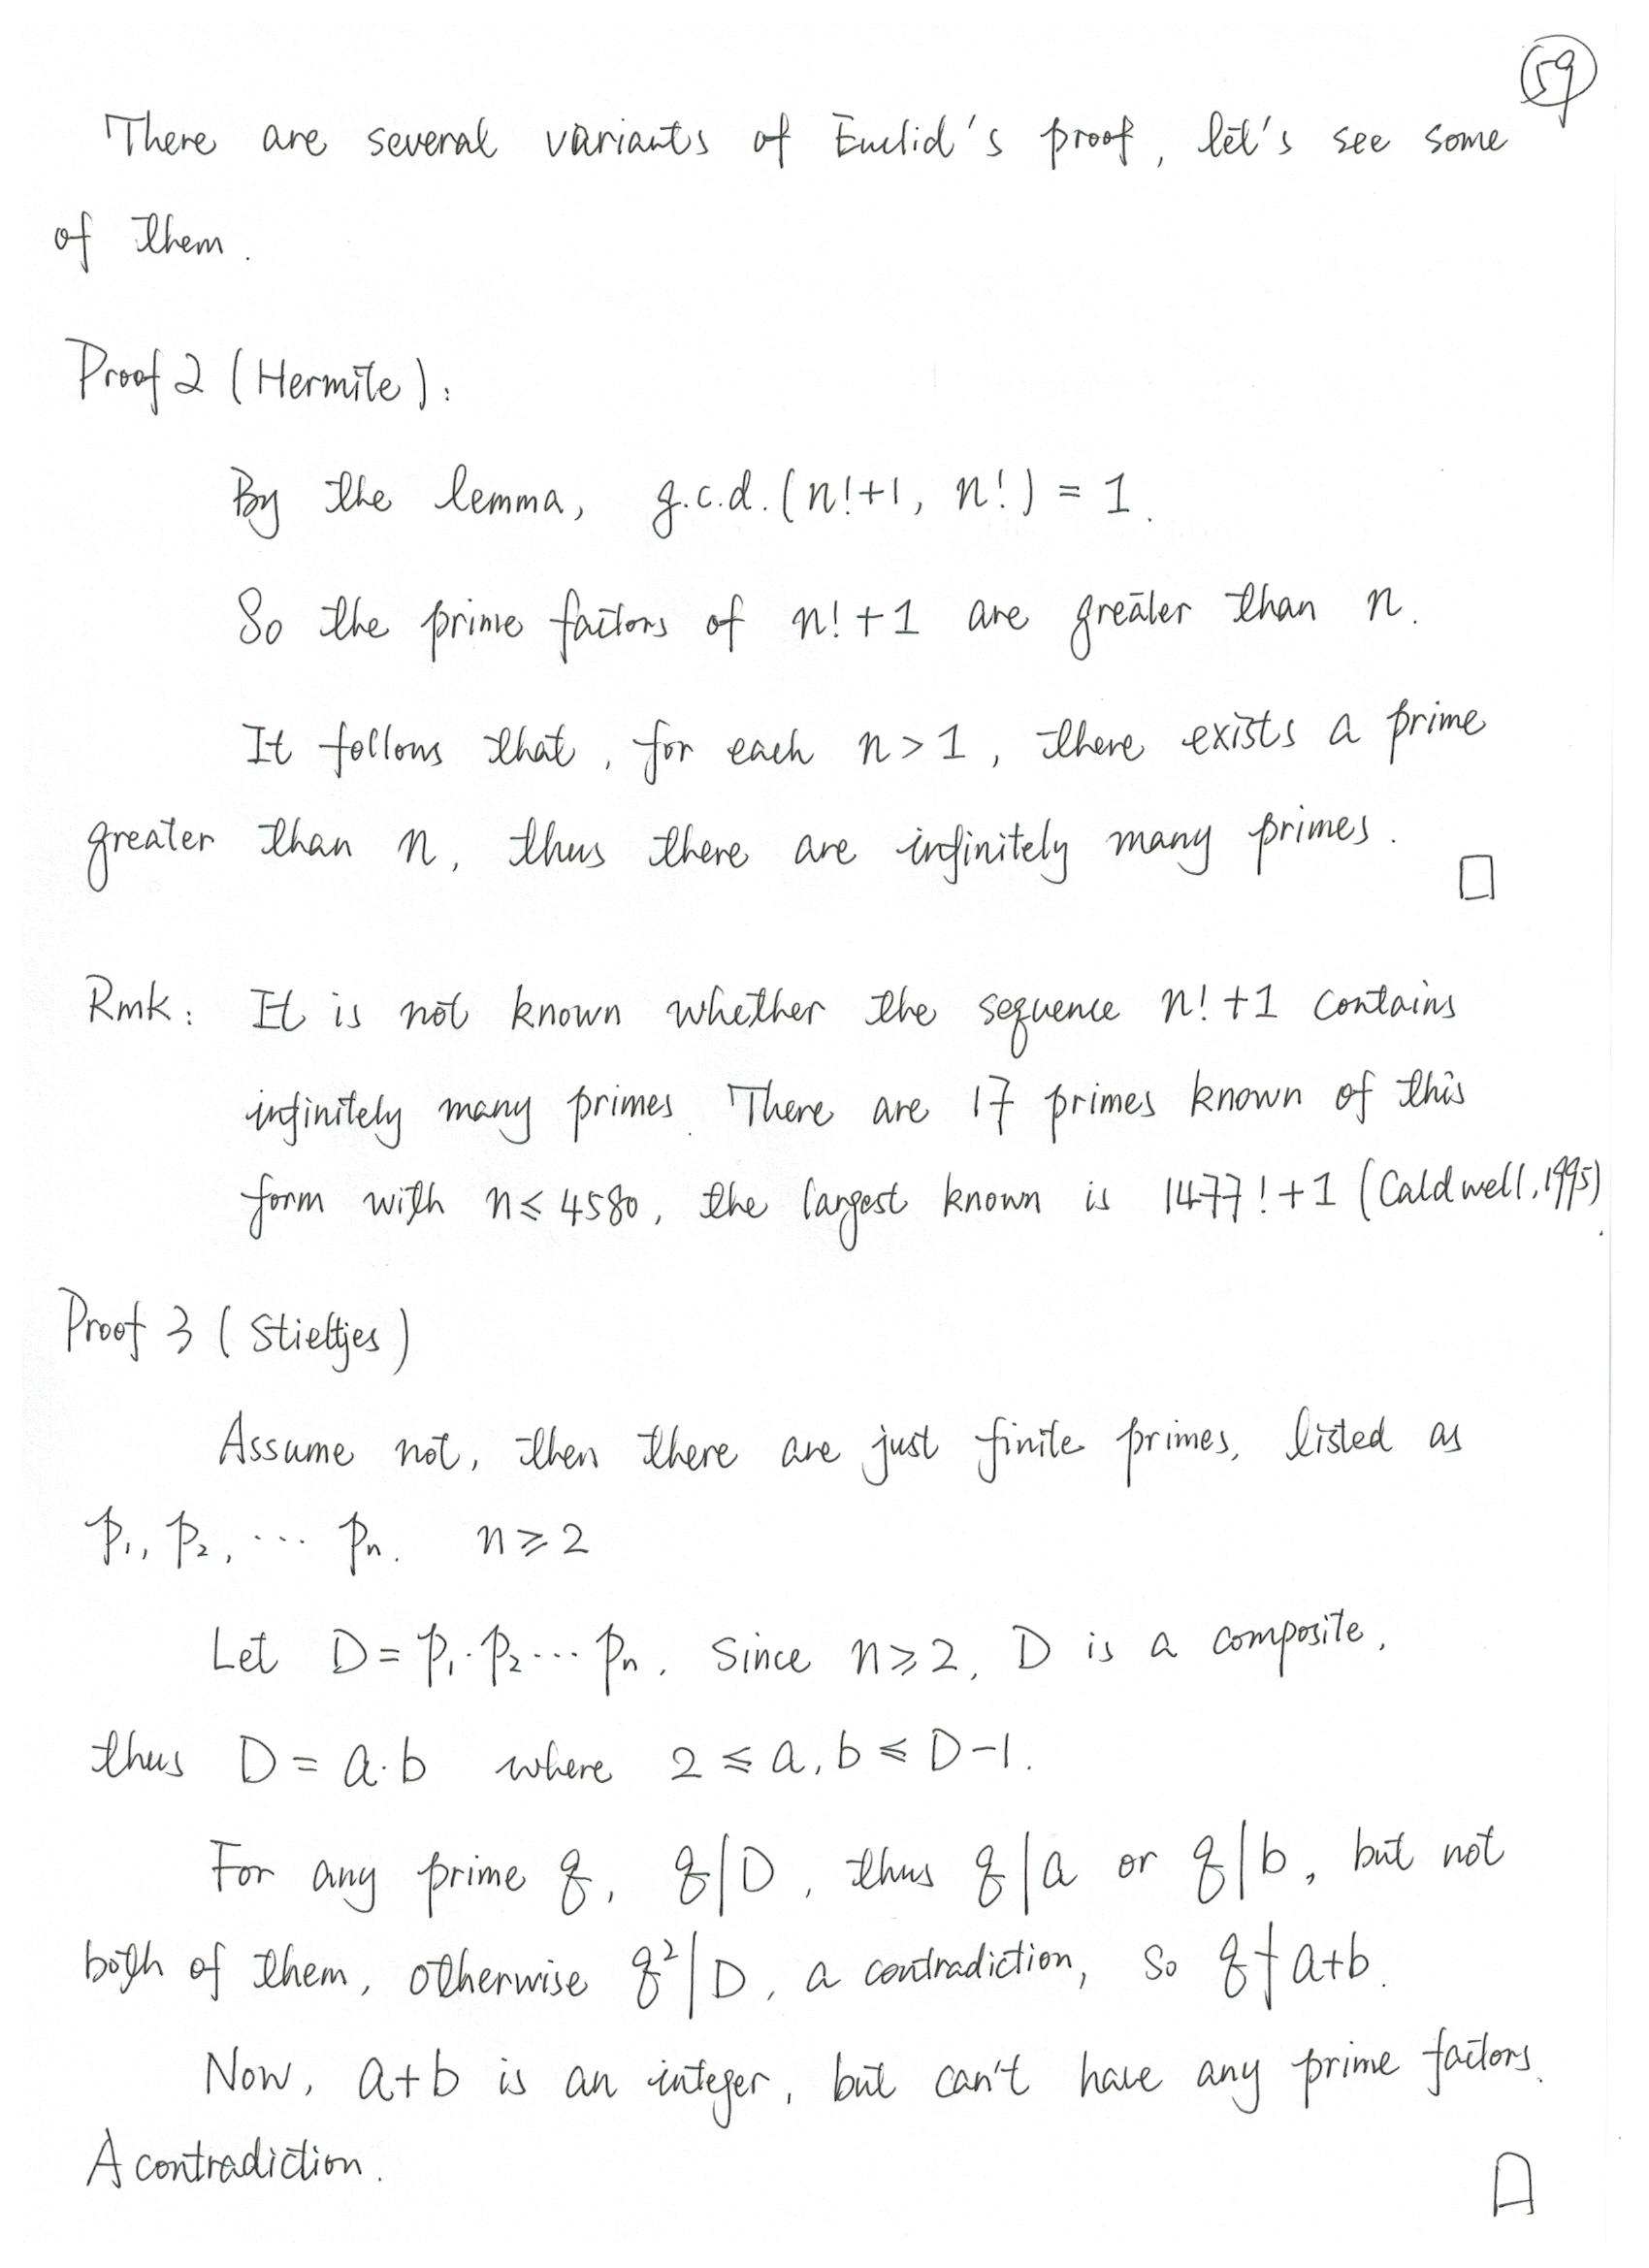 59
There are several variants of Euclid's proof, let's see some
of them.
Proof 2 (Hermite):
By the lemma, g.c.d.(n!+1, n!) = 1.
So the prime factors of n!+1 are greater than n.
It follows that, for each n>1, there exists a prime
greater than n, thus there are infinitely many primes. □
Rmk: It is not known whether the sequence n!+1 contains
infinitely many primes. There are 17 primes known of this
form with n≤4580, the largest known is 1477!+1 (Caldwell, 1995).
Proof 3 (Stieltjes)
Assume not, then there are just finite primes, listed as
p₁, p₂, ⋯ pₙ. n≥2
Let D=p₁·p₂⋯pₙ. Since n≥2, D is a composite,
thus D = a·b where 2≤a,b≤D-1.
For any prime q, q|D, thus q|a or q|b, but not
both of them, otherwise q²|D, a contradiction, so q∤a+b.
Now, a+b is an integer, but can't have any prime factors.
A contradiction. □